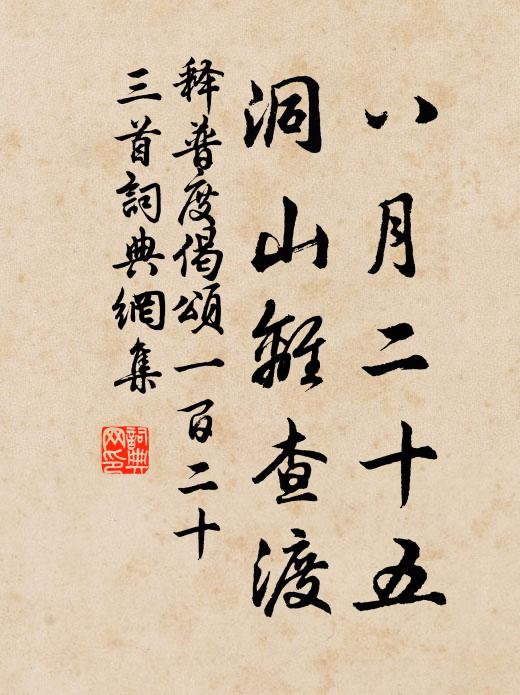 八月二十五
洞山離查渡
释普度偈頌一百二十
三首詞典網集
詞典
网印